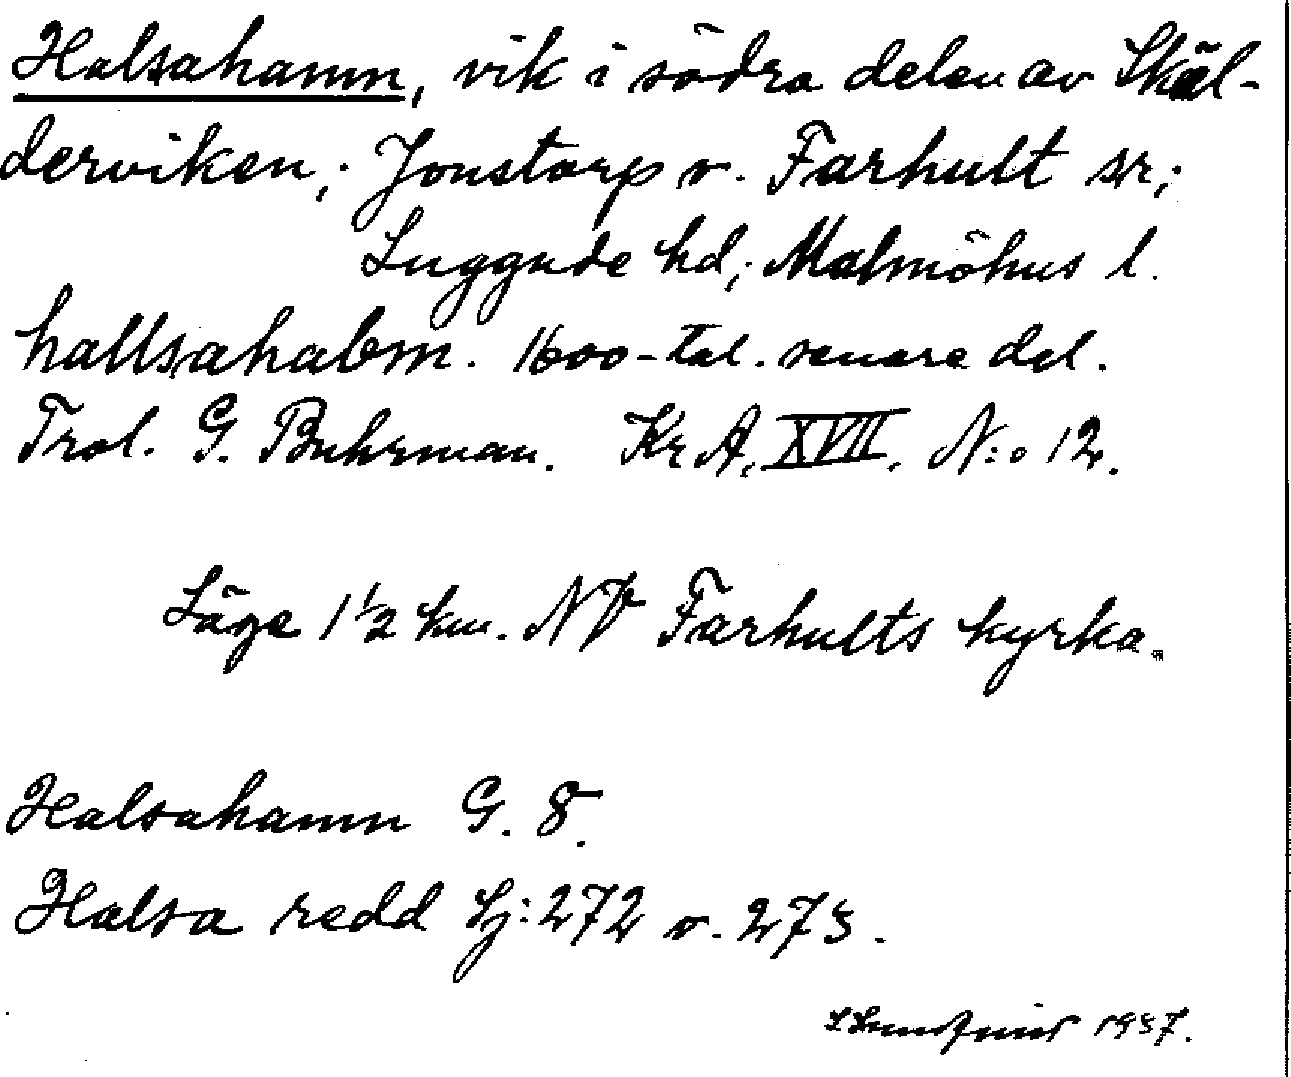 Halsahamn, vik i södra delen av Skäl-
derviken; Jonstorp o. Farhult snr;
Luggude hd; Malmöhus l.
hallsahabm. 1600-tal. senare del.
Trol. G. Buhrman. KrA, XVII, N:o 12.
Läge 1 1/2 km. NV Farhults kyrka.
Halsahamn G. 8.
Halsa redd Sj: 272 o. 273.
1937.